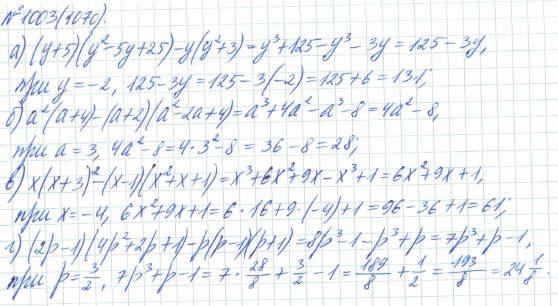 №1003(1070).
а) (y+5)(y²-5y+25)-y(y²+3)=y³+125-y³-3y=125-3y,
при y=-2, 125-3y=125-3(-2)=125+6=131;
б) a²(a+4)-(a+2)(a²-2a+4)=a³+4a²-a³-8=4a²-8,
при a=3, 4a²-8=4·3²-8=36-8=28;
в) x(x+3)²-(x-1)(x²+x+1)=x³+6x²+9x-x³+1=6x²+9x+1,
при x=-4, 6x²+9x+1=6·16+9·(-4)+1=96-36+1=61;
г) (2p-1)(4p²+2p+1)-p(p-1)(p+1)=8p³-1-p³+p=7p³+p-1,
при p=3/2, 7p³+p-1=7·28/8+3/2-1=189/8+1/2=193/8=24 1/8.